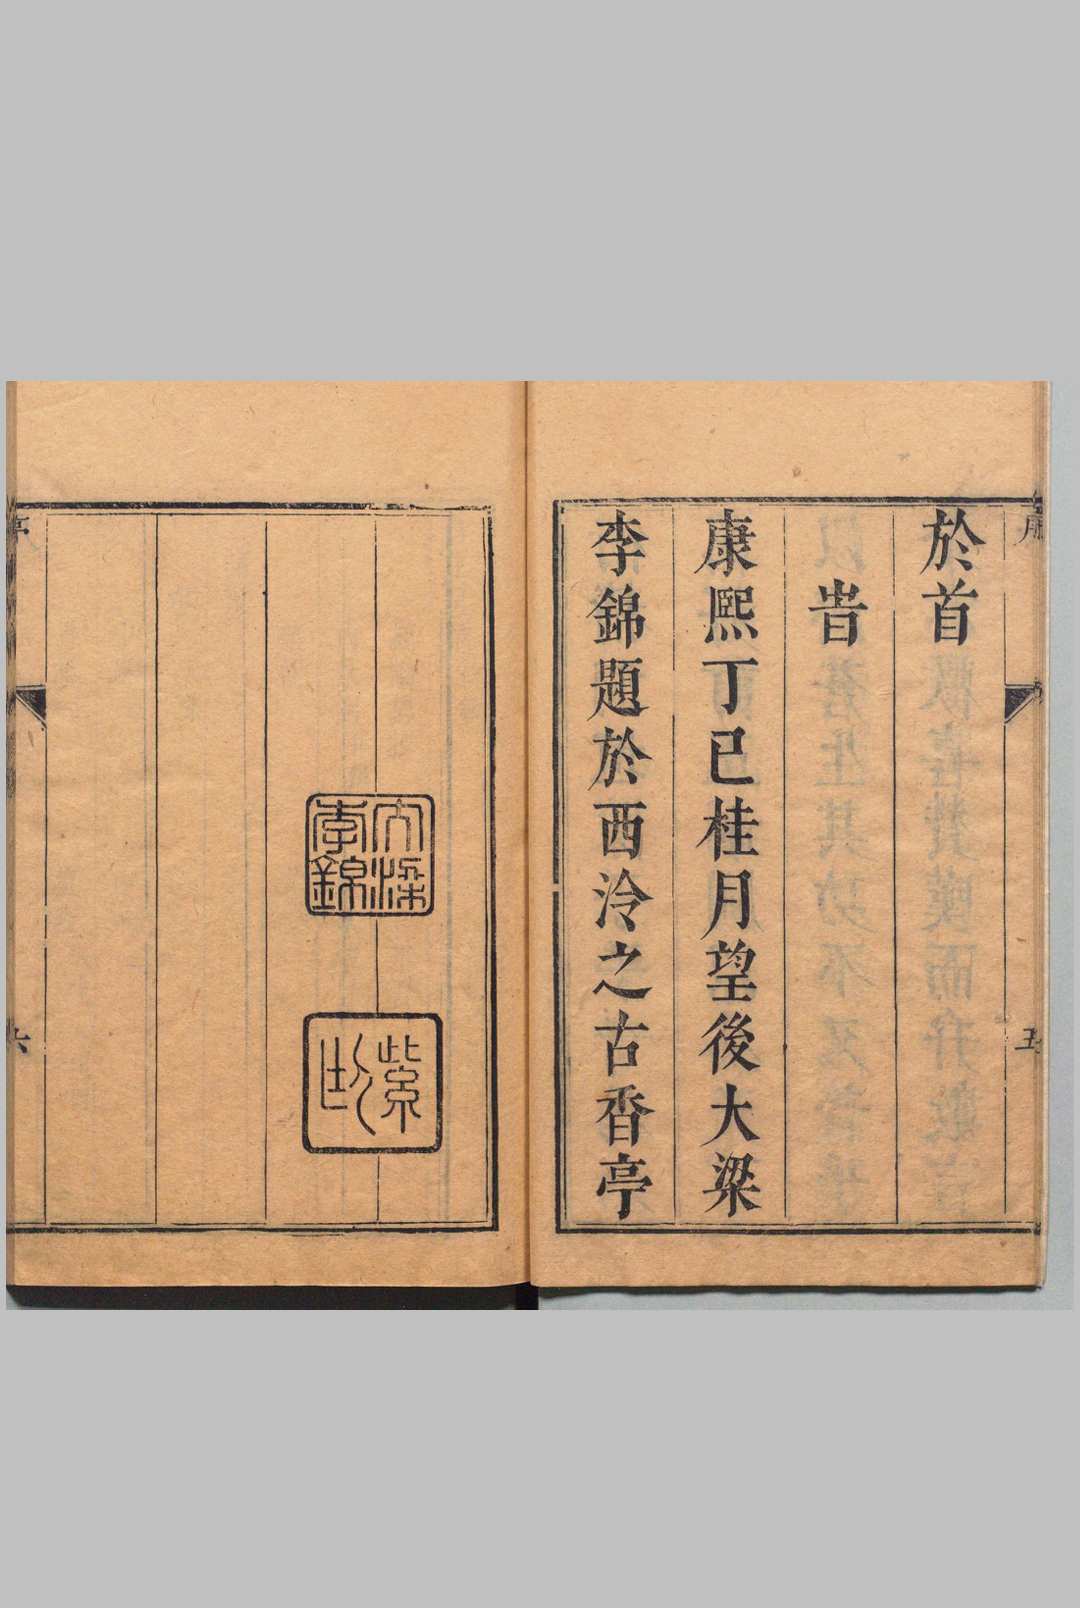 於首
旹
康熙丁巳桂月望後大梁
李錦題於西泠之古香亭
五
大梁李錦
紫
六